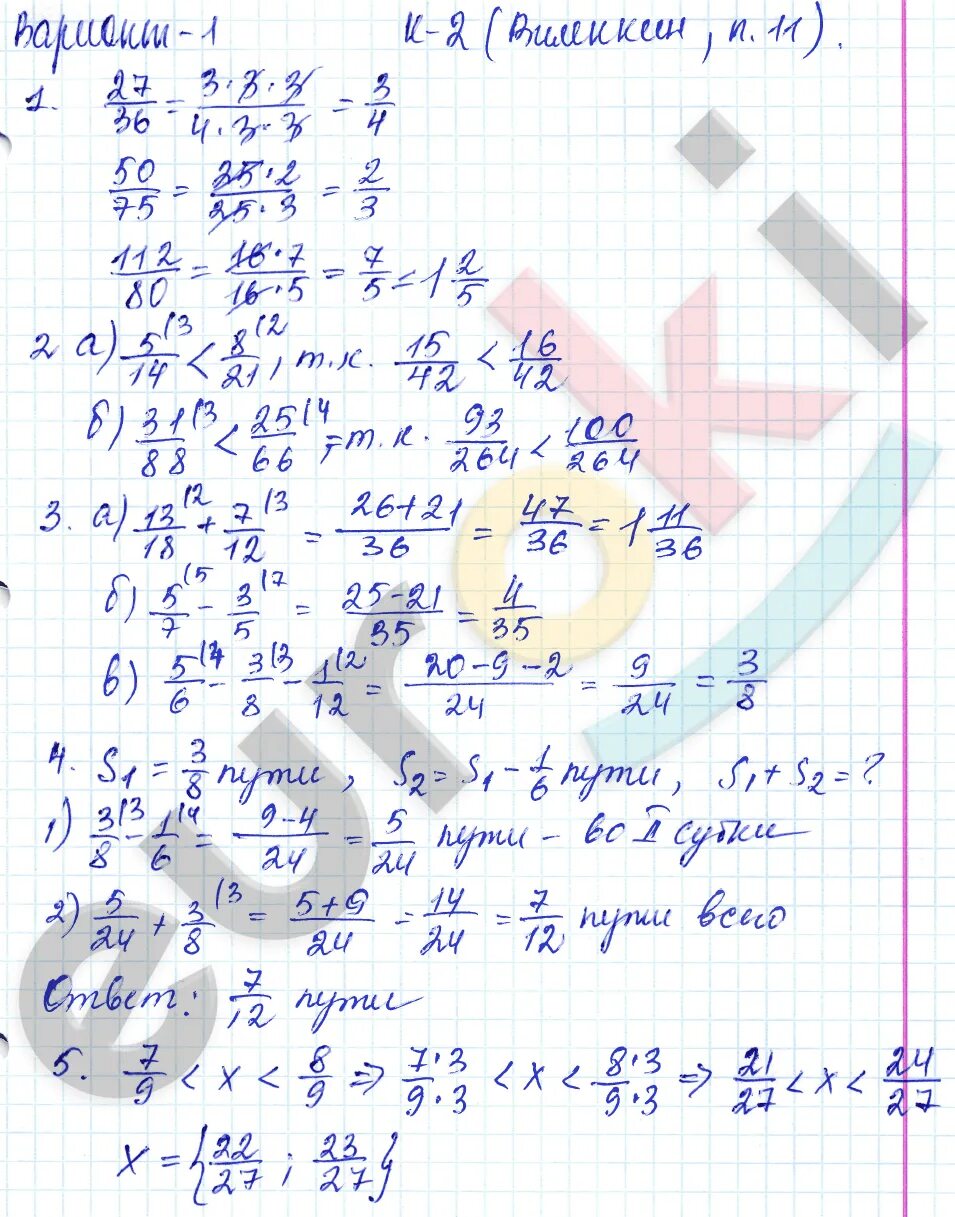 Вариант-1 К-2 (Виленкин, п. 11).
1. 27/36 = 3·3·3/4·3·3 = 3/4
50/75 = 25·2/25·3 = 2/3
112/80 = 16·7/16·5 = 7/5 = 1 2/5
2 а) 5/14 (3 < 8/21 (2, т.к. 15/42 < 16/42
б) 31/88 (3 < 25/66 (4, т.к. 93/264 < 100/264
3. а) 13/18 (2 + 7/12 (3 = 26+21/36 = 47/36 = 1 11/36
б) 5/7 (5 - 3/5 (7 = 25-21/35 = 4/35
в) 5/6 (4 - 3/8 (3 - 1/12 (2 = 20-9-2/24 = 9/24 = 3/8
4. S1 = 3/8 пути, S2 = S1 - 1/6 пути, S1 + S2 = ?
1) 3/8 (3 - 1/6 (4 = 9-4/24 = 5/24 пути - во II сутки
2) 5/24 + 3/8 (3 = 5+9/24 = 14/24 = 7/12 пути всего
Ответ: 7/12 пути
5. 7/9 < x < 8/9 => 7·3/9·3 < x < 8·3/9·3 => 21/27 < x < 24/27
x = {22/27 ; 23/27}
euroki